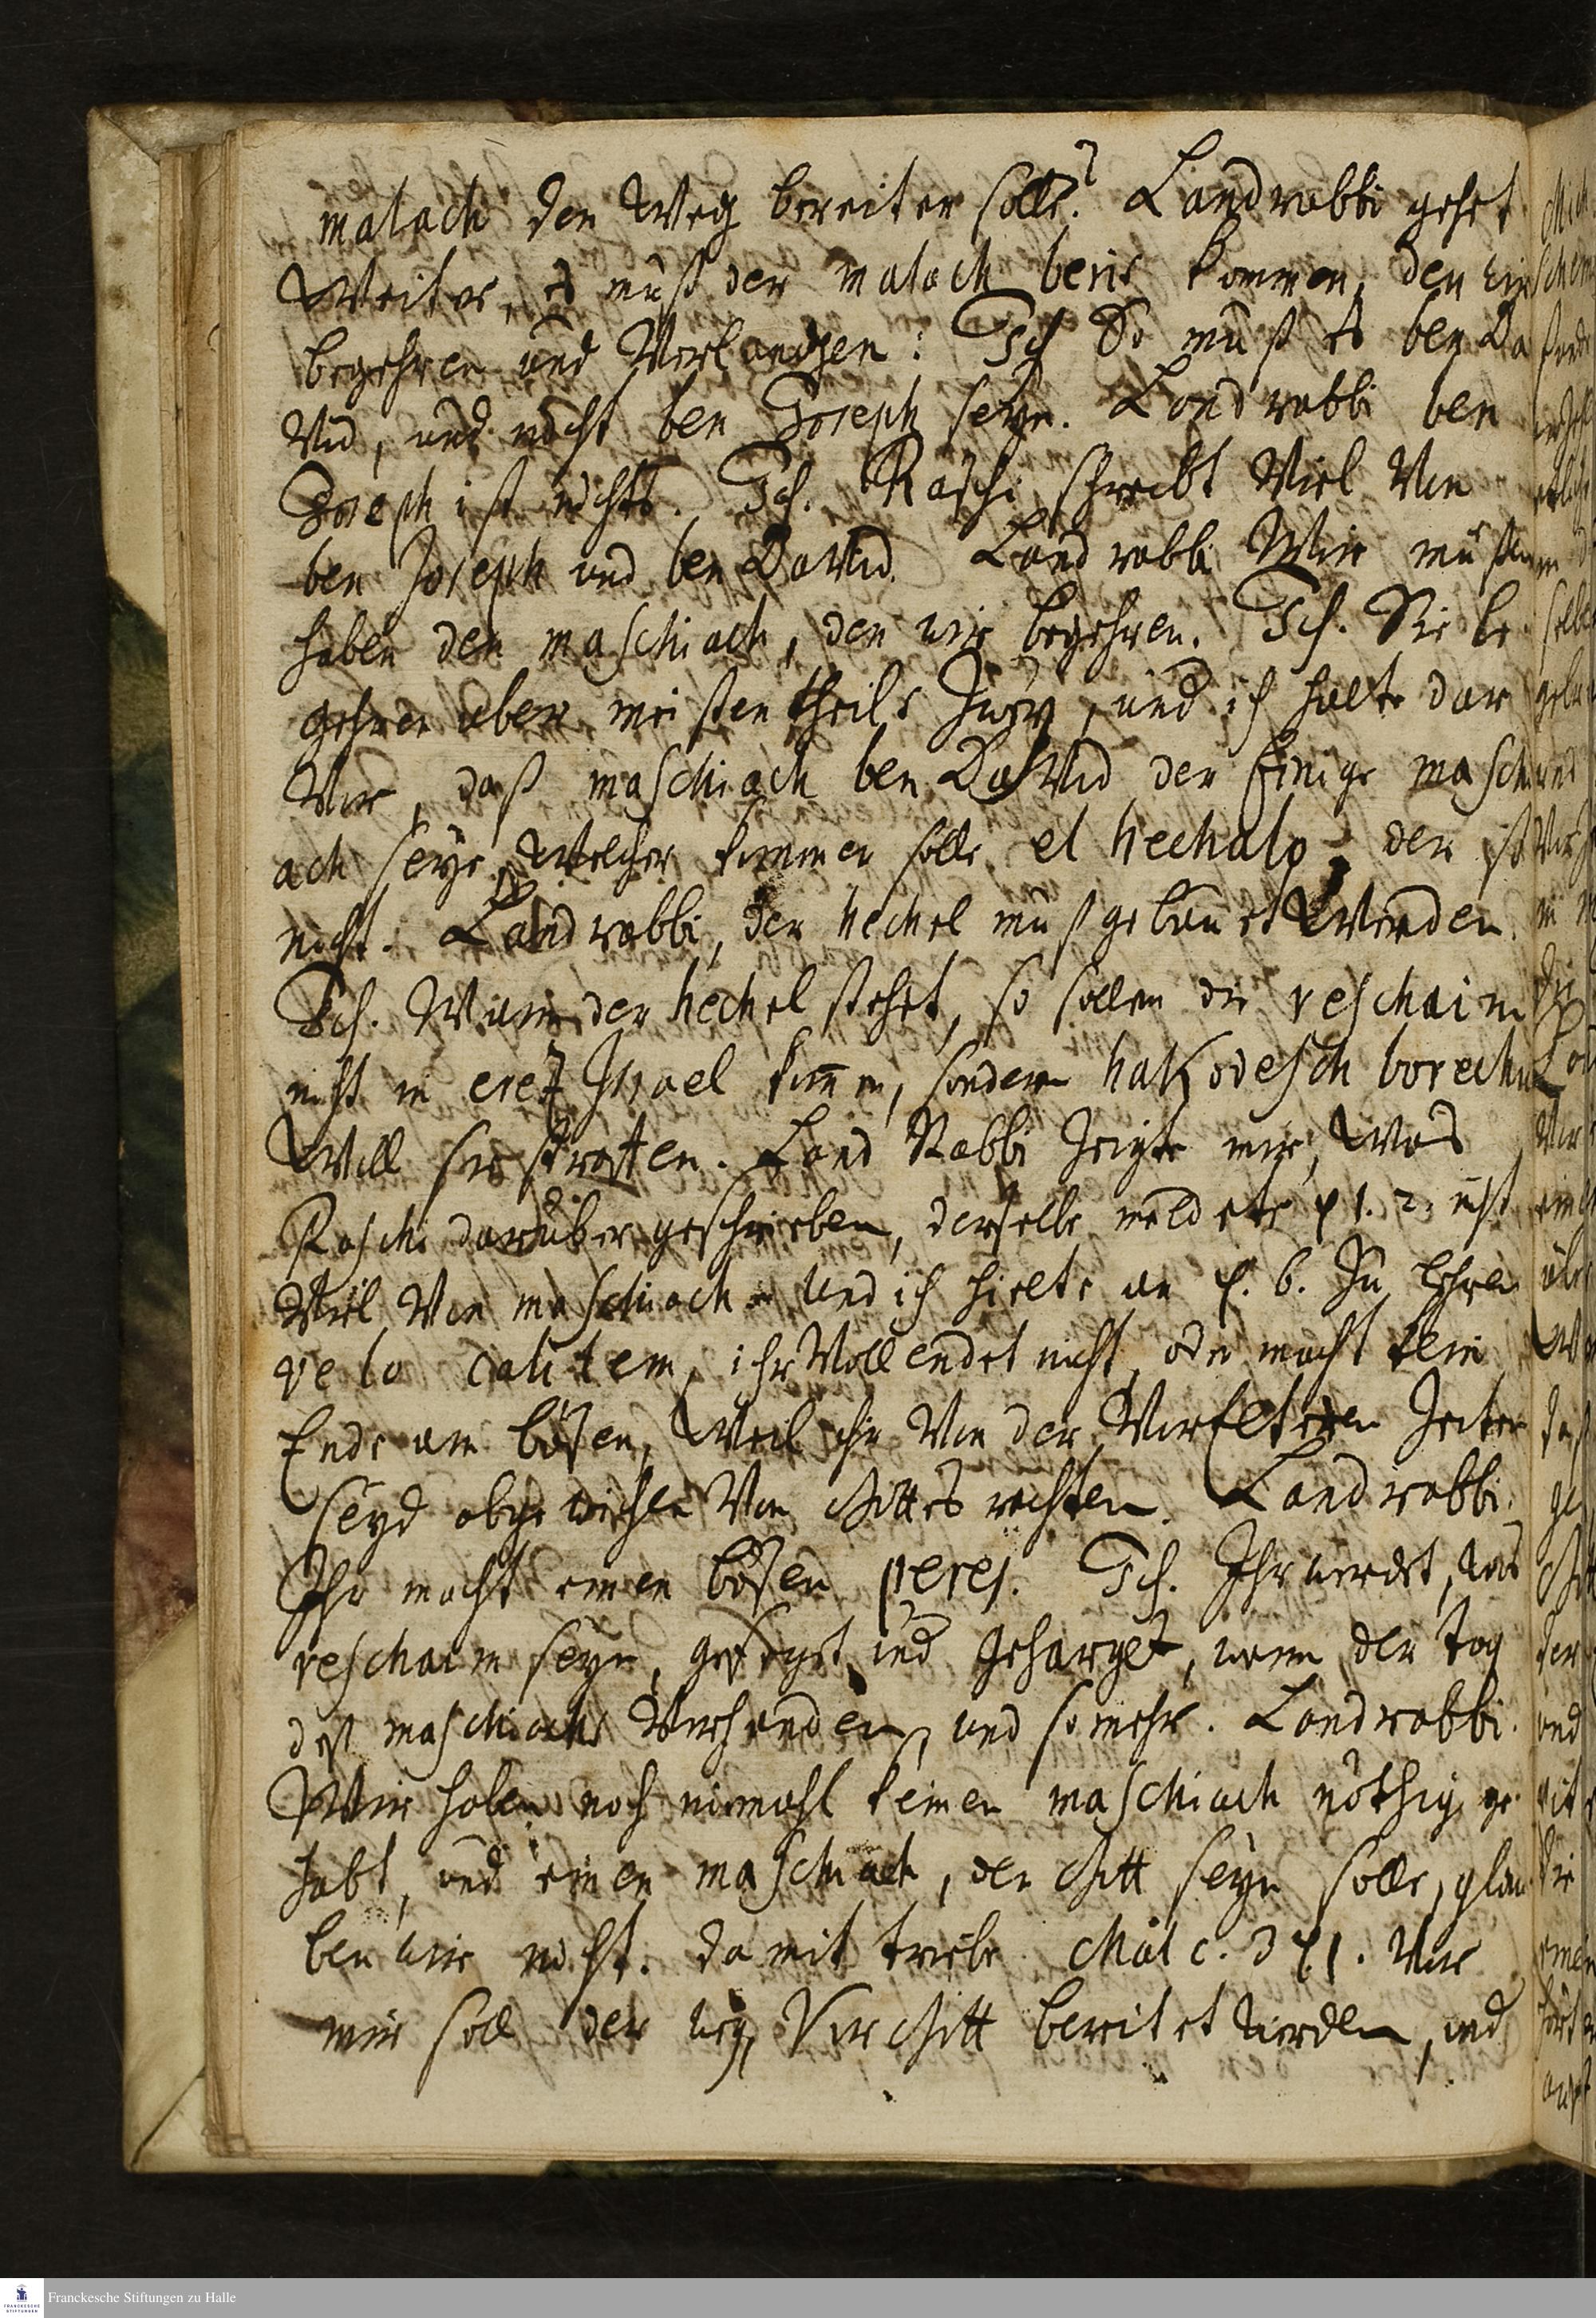 malach den Weg bereiten solle? Landrabbi gehet
Weiter, es muß der malach beris kommen, den wir
begehren und Verlangen: Ich So muß es ben Da
Vid, und nicht ben Joseph seyn. Landrabbi ben
Joseph ist nichts. Ich. Raschi schreibt Viel Von
ben Joseph und ben DaVid. Landrabbi Wir müßen
haben den maschiach, den wir begehren. Ich. Sie be
gehren aber meistentheils und ich halte dar
Vor, daß maschiach ben DaVid der Einige maschi
ach seye, Welcher kommen solle el hechalo, der ist
nicht. Landrabbi, der hechel muß gebauet Werden.
Ich. Wann der hechel stehet, so sollen die reschaim
nicht in erez Israel kommen, sondern hakodesch borechu
Will sie straffen. Land Rabbi zeigte mir, Was
Raschi darüber geschrieben, derselbe meldete 1. 2. nicht
Viel Von maschiach Und ich hielte an 6. Zu lesen
velo calitem, ihr Vollendet nicht, oder macht kein
Ende am bösen, Weil ihr Von der VorEltern Zeiten
seyd abgewichen Von Gottes rechten. Landrabbi
Ihr macht einen bösen peres. Ich. Ihr werdet, was
reschaim seyn, gefegt und geharget, wenn der tag
deß maschiachs Vorhanden, und so mehr. Landrabbi.
Wir haben noch niemahl keinen maschiach nöthig ge
habt, und einen maschiach, der Gott seyn solle, glau
ben wir nicht. damit triebe Mal c. 3 1. Vor
mir soll der weg Vor Gott bereitet werden, und
Franckesche Stiftungen zu Halle